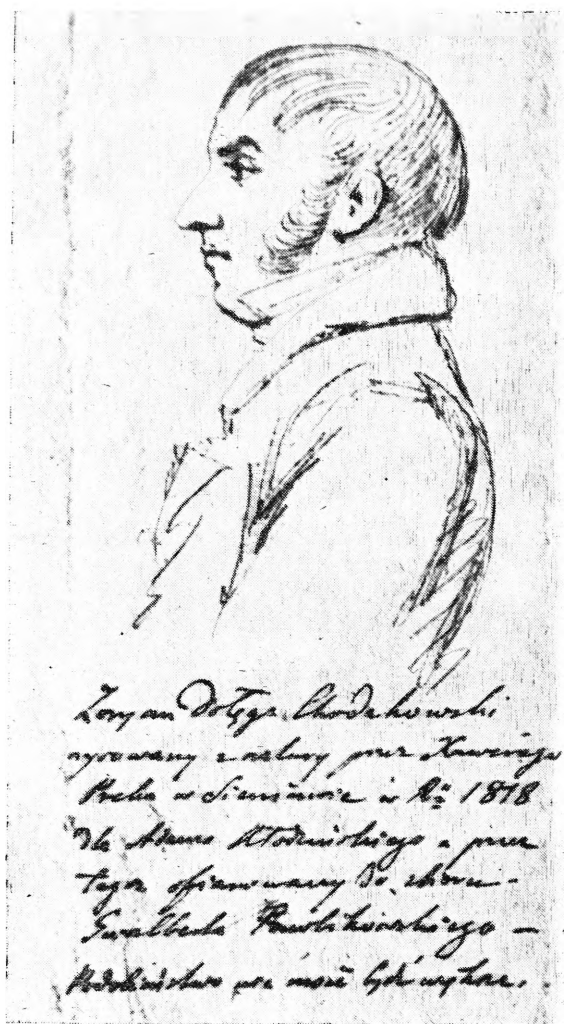 Zoryan Dołęga Chodakowski
rysowany z natury przez Xawerego
Preka w Sieniawie w Rü 1818
dla Adama Kłodzińskiego a przez
tegoż ofiarowany do zbioru
Gwalberta Pawlikowskiego —
Podobieństwo nie może być większe.